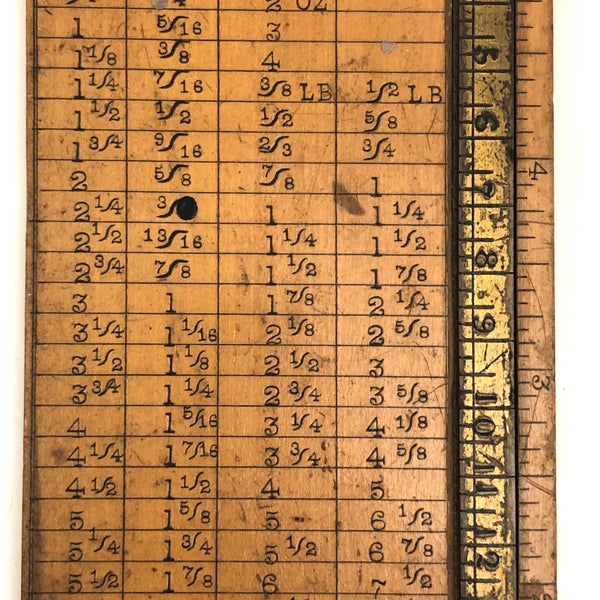 2 OZ
1 5/16 3
1 1/8 3/8 4
1 1/4 7/16 3/8 LB 1/2 LB
1 1/2 1/2 1/2 5/8
1 3/4 9/16 2/3 3/4
2 5/8 7/8 1
2 1/4 3/ 1 1 1/4
2 1/2 13/16 1 1/4 1 1/2
2 3/4 7/8 1 1/2 1 7/8
3 1 1 7/8 2 1/4
3 1/4 1 1/16 2 1/8 2 5/8
3 1/2 1 1/8 2 1/2 3
3 3/4 1 1/4 2 3/4 3 5/8
4 1 5/16 3 1/4 4 1/8
4 1/4 1 7/16 3 3/4 4 5/8
4 1/2 1 1/2 4 5
5 1 5/8 5 6 1/2
5 1/4 1 3/4 5 1/2 6 7/8
5 1/2 1 7/8 6 7 1/2
5
6
7
8
9
10
11
12
4
3